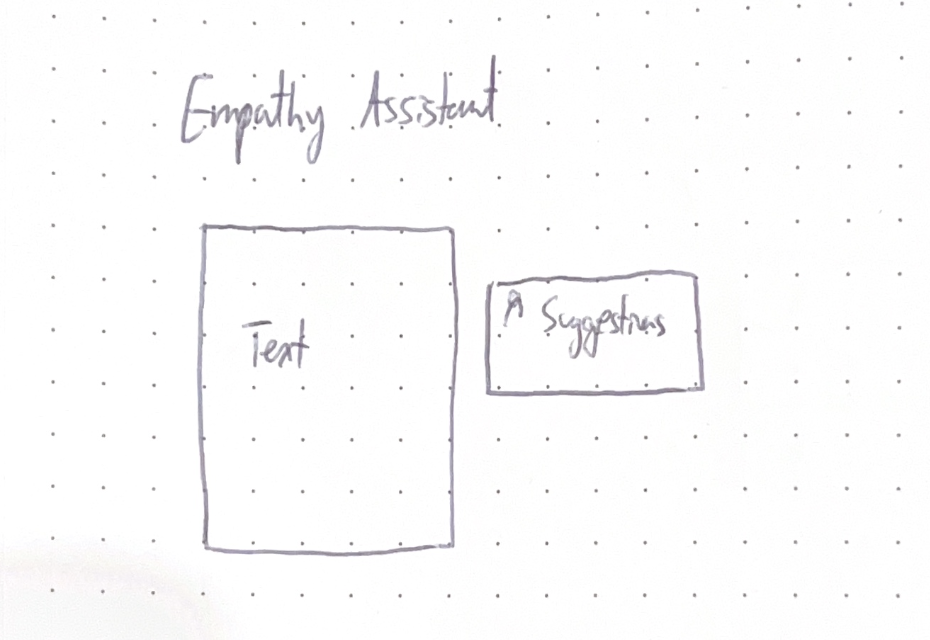 Empathy Assistant
Text
Suggestions